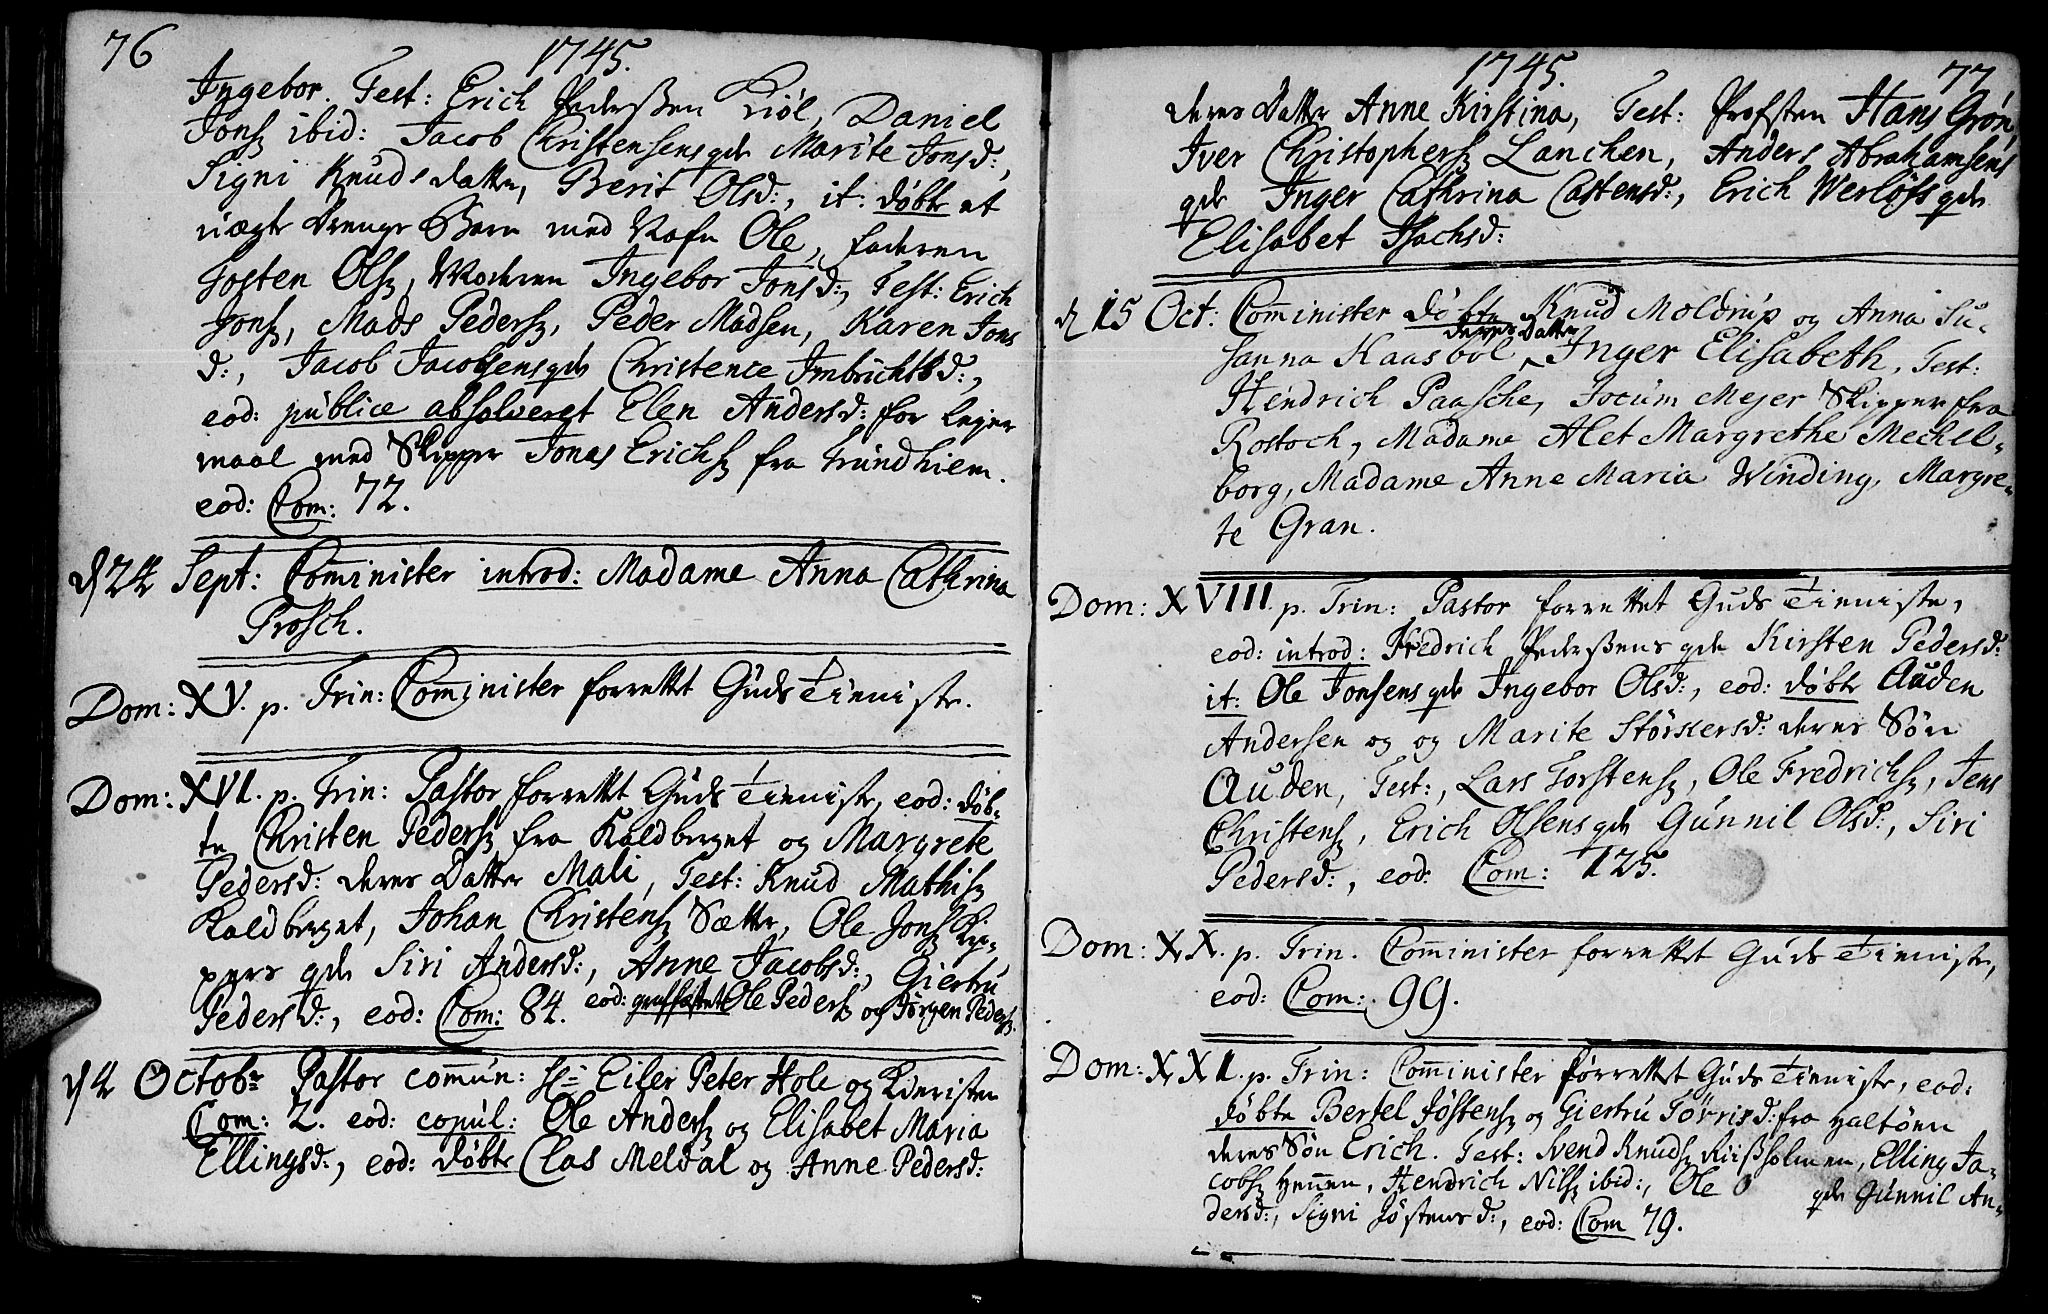 76
1745.
Ingebor. Test: Erich Pederßen Kiöl, Daniel
Jons. ibid: Jacob Christensens qde Marite Jonsd:,
Signi Knuds datter, Berit Olsd:, it: døbte et
uægte Drenge Barn med Nafn Ole, faderen
Josten Ols., Moderen Ingebor Jonsd:, Test: Erich
Jons., Mads Peders., Peder Madsen, Karen Jons
d:, Jacob Jacobsens qde Christence Imbrichtsd:,
eod: publice absolveret Elen Andersd: for Lejer
maal med Skipper Jonas Erichs. fra Trundhiem.
eod: Com: 72.
d 22 Sept: Comminister introd: Madame Anna Cathrina
Frosch.
Dom: XV. p. Trin: Comminister forrettet Guds Tieniste.
Dom: XVI. p. Trin: Pastor forrettet Guds Tieniste, eod: døb-
te Christen Peders. fra Kaldberget og Margrete
Pedersd: deres Datter Mali, Test: Knud Mathis.
Kaldberget, Johan Christens. Sætter, Ole Jons.
qde Siri Andersd:, Anne Jacobsd:, Giertru
Pedersd:, eod: Com: 84. eod: Ole Peders. og Jørgen Peders.
d 2 Octobr Pastor commun: Sr Eiler Peter Hole og Kieristen
Com: 2. eod: copul: Ole Anders. og Elisabet Maria
Ellingsd:, eod: døbte Clas Meldal og Anne Pedersd:
1745.
77
deres Datter Anne Kirstina, Test: Profsten Hans Grøn,
Iver Christophers. Lanchen, Anders Abrahamsens
qde Inger Cathrina Castensd:, Erich Werløfs qde
Elisabet Isachsd:
d 15 Oct: Comminister døbte Knud Moldrup og Anna Su-
sanna Kaasbøl deres Datter Inger Elisabeth, Test:
Hendrich Paasche, Jocum Mejer Skipper fra
Rostoch, Madame Alet Margrethe Mechel-
borg, Madame Anne Maria Winding, Margre-
te Gran.
Dom: XVIII. p. Trin: Pastor forrettet Guds Tieniste,
eod: introd: Fredrich Pederßens qde Kirsten Pedersd:
it: Ole Jonsens qde Ingebor Olsd:, eod: døbte Auden
Andersen og og Marite Størkersd: deres Søn
Auden, Test:, Lars Torstens., Ole Fredrichs., Jens
Christens., Erich Olsens qde Gunnil Olsd:, Siri
Pedersd:, eod: Com: 125.
Dom: XX. p. Trin. Comminister forrettet Guds Tieniste,
eod: Com: 99.
Dom: XXI. p. Trin: Comminister forrettet Guds Tieniste, eod:
døbte Bertel Jøstens. og Giertru Tørrisd: fra Haltøen
deres Søn Erich. Test: Svend Knuds. Riißholmen, Elling Ja-
cobs. Hennen, Hendrich Nils. ibid:, Ole qde Gunnil An-
dersd:, Signi Jøstensd:, eod: Com 79.